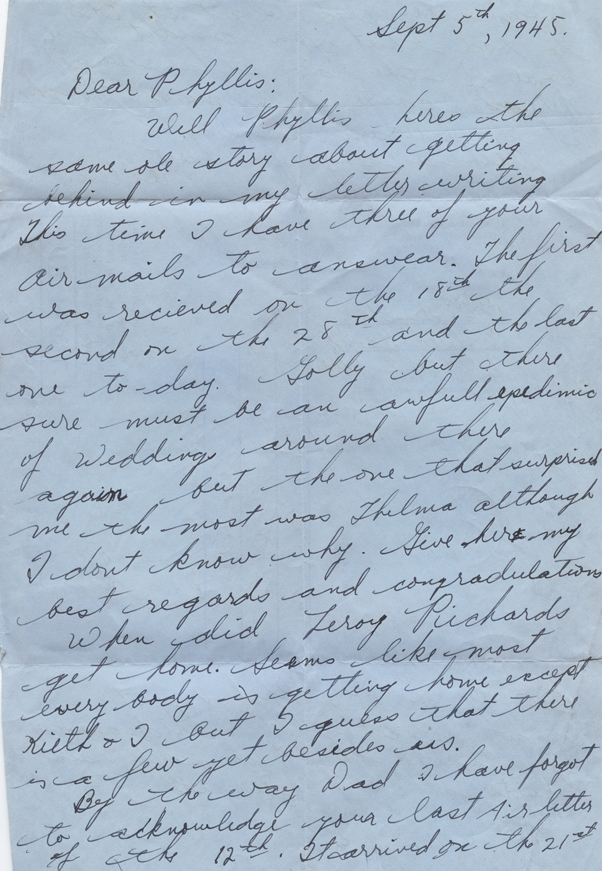 Sept 5th, 1945.
Dear Phyllis:
Well Phyllis heres the
same ole story about getting
behind in my letter writing
This time I have three of your
air mails to answear. The first
was recieved on the 18th the
second on the 28th and the last
one to-day. Golly but there
sure must be an awfull epedimic
of Weddings around there
again but the one that surprised
me the most was Thelma although
I dont know why. Give her my
best regards and congradulations
When did Leroy Richards
get home. Seams like most
every body is getting home except
Kieth & I but I guess that there
is a few yet besides us.
By the way Dad I have forgot
to acknowledge your last Air letter
of the 12th. It arrived on the 21st